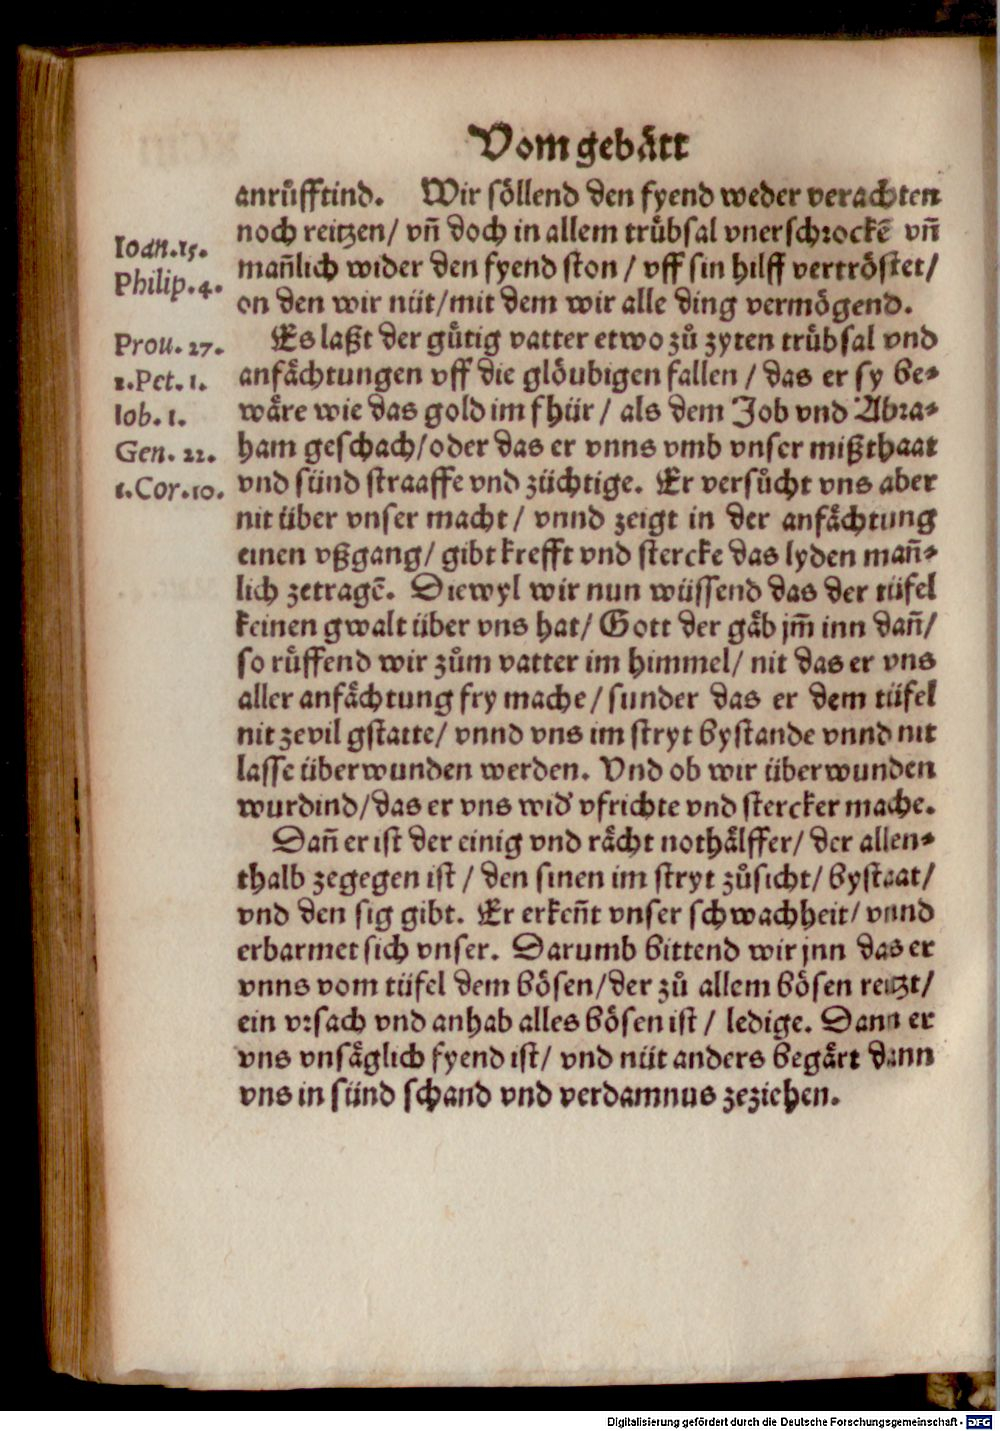 Vom gebaͤtt
anruͤfftind. Wir soͤllend den fyend weder verachten
noch reitzen/ vn̄ doch in allem truͤbsal vnerschrockē vn̄
Ioan.15.
man̄lich wider den fyend ston / vff sin hilff vertroͤstet/
Philip.4.
on den wir nüt/mit dem wir alle ding vermoͤgend.
Es laßt der guͤtig vatter etwo zů zyten truͤbsal vnd
Prou. 27.
anfaͤchtungen vff die gloͤubigen fallen / das er sy be-
1.Pet. 1.
waͤre wie das gold im fhür / als dem Job vnd Abra-
Iob. 1.
ham geschach/oder das er vnns vmb vnser mißthaat
Gen. 22.
vnd sünd straaffe vnd züchtige. Er versůcht vns aber
1.Cor.10.
nit über vnser macht/ vnnd zeigt in der anfaͤchtung
einen vßgang/ gibt krefft vnd stercke das lyden man̄-
lich zetragē. Diewyl wir nun wüssend das der tüfel
keinen gwalt über vns hat/ Gott der gaͤb jm̄ inn dan̄/
so ruͤffend wir zům vatter im himmel/ nit das er vns
aller anfaͤchtung fry mache/ sunder das er dem tüfel
nit zevil gstatte/ vnnd vns im stryt bystande vnnd nit
lasse überwunden werden. Vnd ob wir überwunden
wurdind/das er vns wid' vfrichte vnd stercker mache.
Dan̄ er ist der einig vnd raͤcht nothaͤlffer/ der allen-
thalb zegegen ist / den sinen im stryt zůsicht/ bystaat/
vnd den sig gibt. Er erken̄t vnser schwachheit/ vnnd
erbarmet sich vnser. Darumb bittend wir jnn das er
vnns vom tüfel dem boͤsen/der zů allem boͤsen reitzt/
ein vrsach vnd anhab alles boͤsen ist / ledige. Dann er
vns vnsaͤglich fyend ist/ vnd nüt anders begaͤrt dann
vns in sünd schand vnd verdamnus zeziehen.
Digitalisierung gefördert durch die Deutsche Forschungsgemeinschaft - DFG